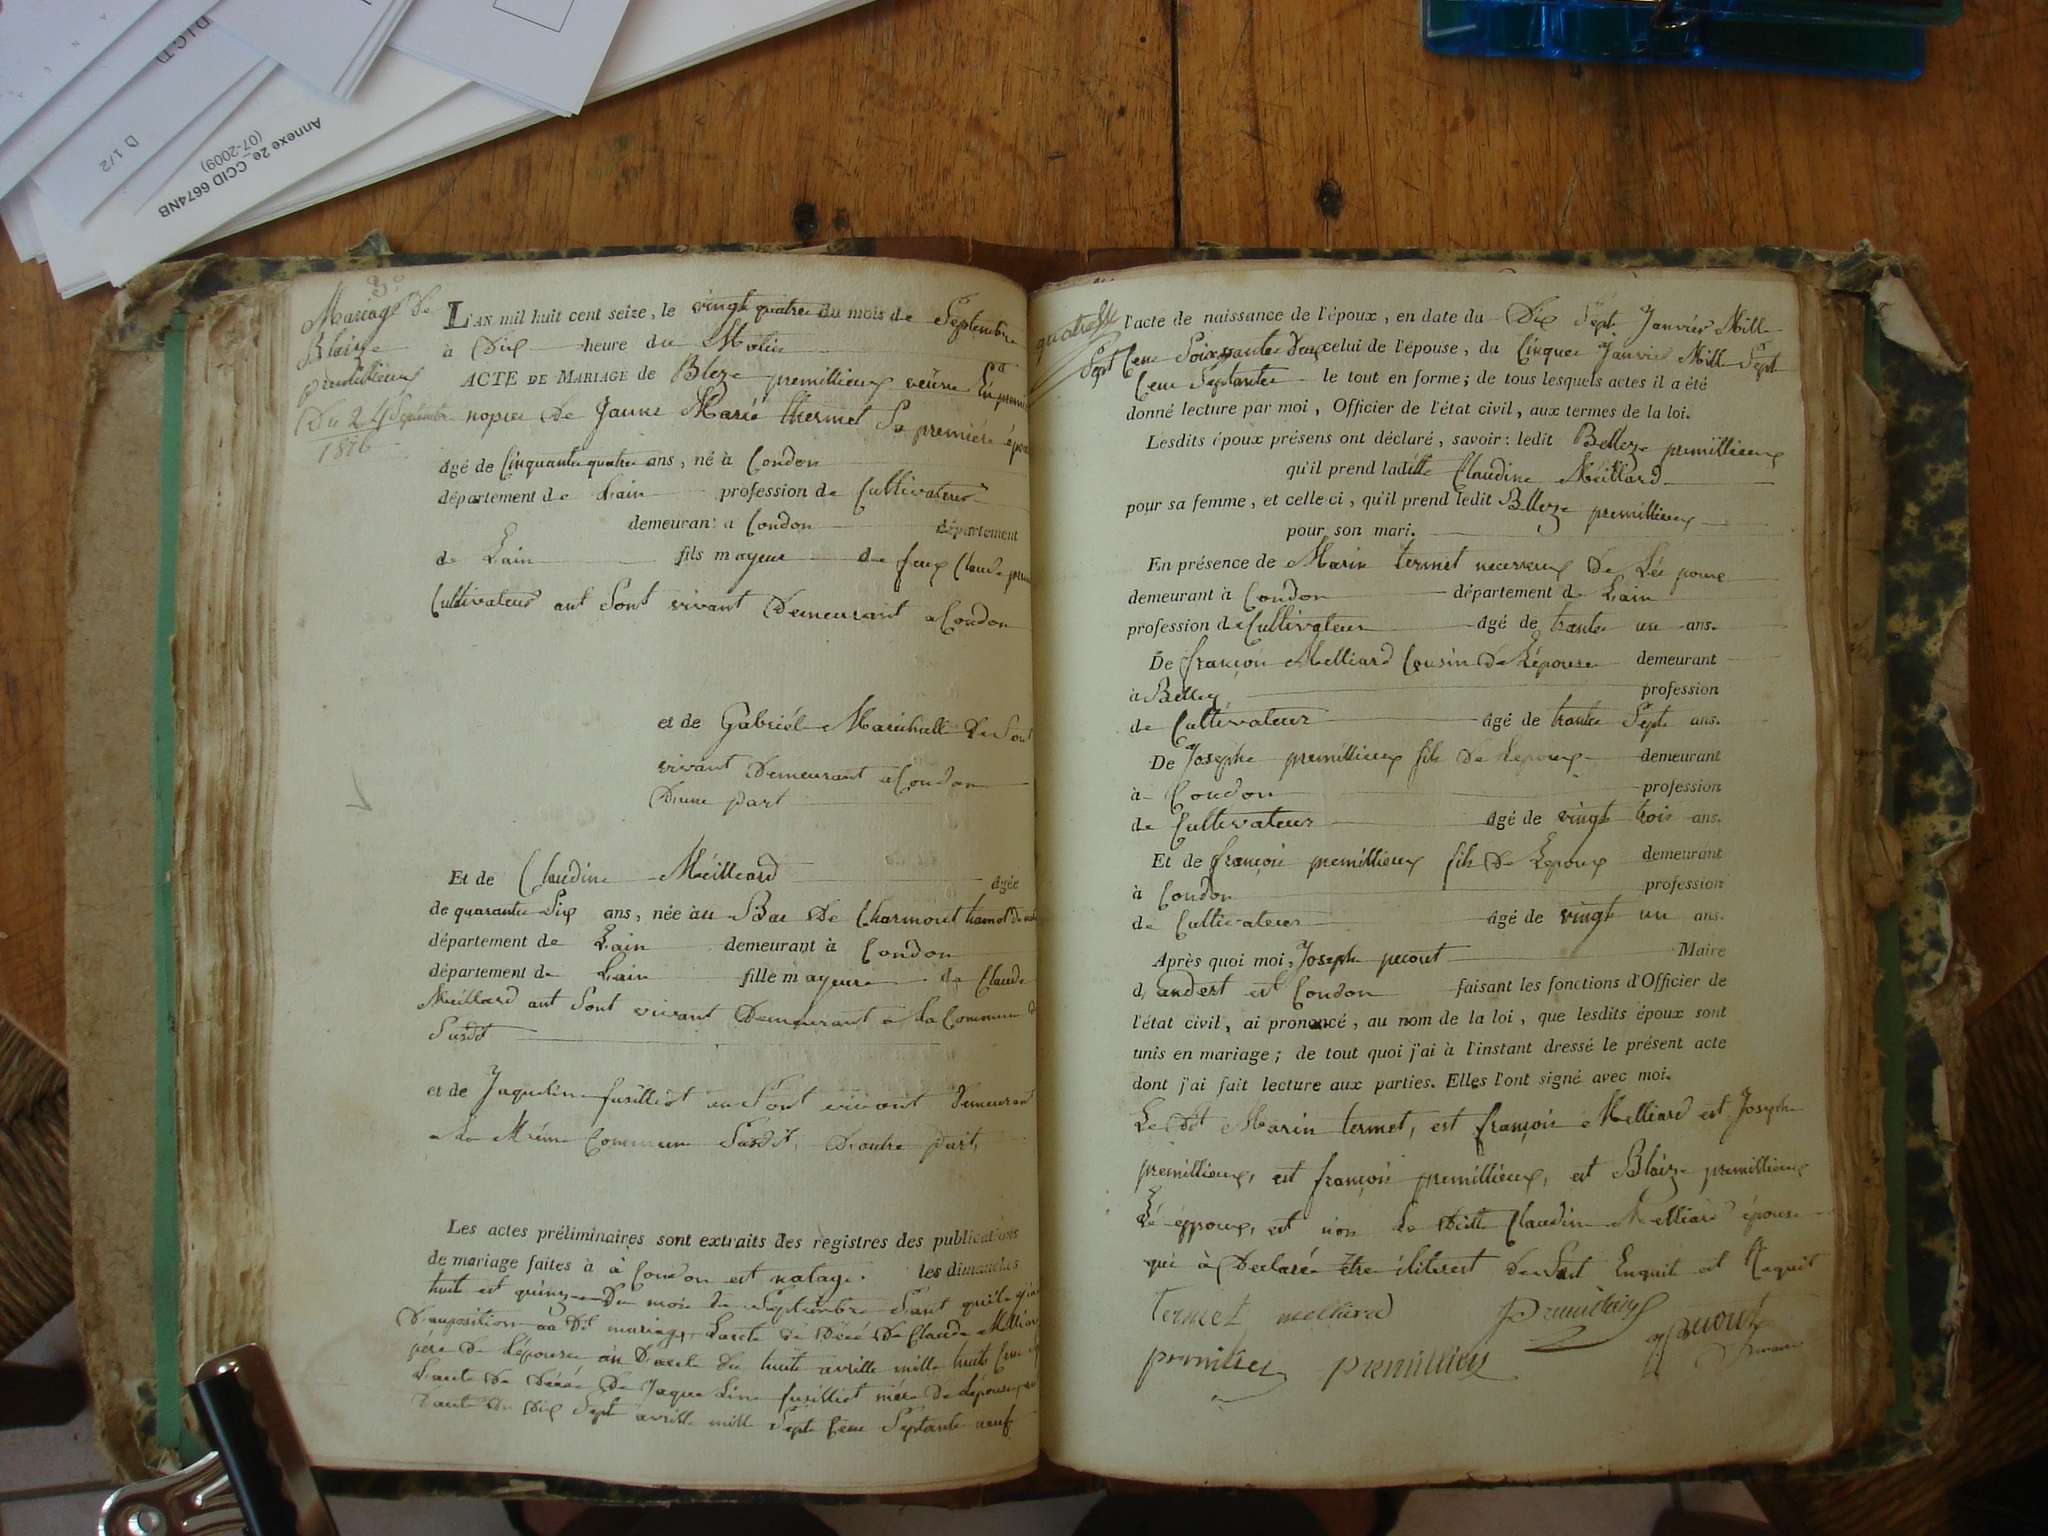 DICTD
D 1/2
Annexe 2e_CCID 6674NB
(07-2009)
3e
Mariage De
Blaize
premillieux
Du 24 Septembre
1816
L'AN mil huit cent seize, le vingt quatre du mois de Septembre
à Dix heure du Matin
ACTE DE MARIAGE de Bleze premillieux veüve En premié
nopces De Janne Marie thermet Sa premiére épou
âgé de Cinquante quatre ans, né à Condon
département de Lain profession de Cultivateur
demeurant à Condon département
de Lain fils mayeur de feux Claude prem
Cultivateur ant Sont vivant Demeurant a Condon
et de Gabriél Marichall De Sont
vivant Demeurant a Condon
Dune part
Et de Claudine Méilliard âgée
de quarante Six ans, née au Bac De Charmont hamot De nata
département de Lain demeurant à Condon
département de Lain fille mayeure de Claude
Méillard ant Sont vivant Demeurant a La Commune
Susdt
et de Jaqueline fusilliot en Sont vivant Demeurant
a La Méme Commune Susdit, Dautre part,
Les actes préliminaires sont extraits des registres des publications
de mariage faites à à Condon est natage. les dimanches
huit et quinze Du mois de Septembre Sant quil
Dauposition au Dit mariage, Lacte de Décé De Claude Melliar
pére de Lépouse an Dacte du huit avrille mille huit Cent
Lacte De Décée De Jaqueline fusilliot mére De Lépouse
Dacte du Dix Sept avrille mille Sept Cent Septante neuf
l'acte de naissance de l'époux, en date du Dix Sept Janvier Mille
Sept Cent Soixante Deux celui de l'épouse, du Cinque Janvier Mille Sept
Cent Septante le tout en forme; de tous lesquels actes il a été
donné lecture par moi, Officier de l'état civil, aux termes de la loi.
Lesdits époux présens ont déclaré, savoir: ledit Belleze premillieux
qu'il prend ladite Claudine Méillard
pour sa femme, et celle-ci, qu'il prend ledit Blleze premillieux
pour son mari.
En présence de Marin termet neveux De Lépoux
demeurant à Condon département de Lain
profession de Cultivateur âgé de trante un ans.
De françoi Melliard Cousin De Lépouse demeurant
à Belley profession
de Cultivateur âgé de trante Sept ans.
De Josephe premillieux fils De Lepoux demeurant
à Condon profession
de Cultivateur âgé de vingt trois ans.
Et de françoi premillieux fils De Lepoux demeurant
à Condon profession
de Cultivateur âgé de vingt un ans.
Après quoi moi, Joseph pecout Maire
d, andert est Condon faisant les fonctions d'Officier de
l'état civil, ai prononcé, au nom de la loi, que lesdits époux sont
unis en mariage; de tout quoi j'ai à l'instant dressé le présent acte
dont j'ai fait lecture aux parties. Elles l'ont signé avec moi.
Le Dt Marin termet, est françoi Melliard est Josephe
premillieux, est françoi premillieux, est Blaize premillieux
Lé époux, est non La Ditte Claudine Melliard épouse
qui à Declarée être iliterest De Set Enquit et Requit
Termet melliard premillieux jpecout
premillieu premillieu maire